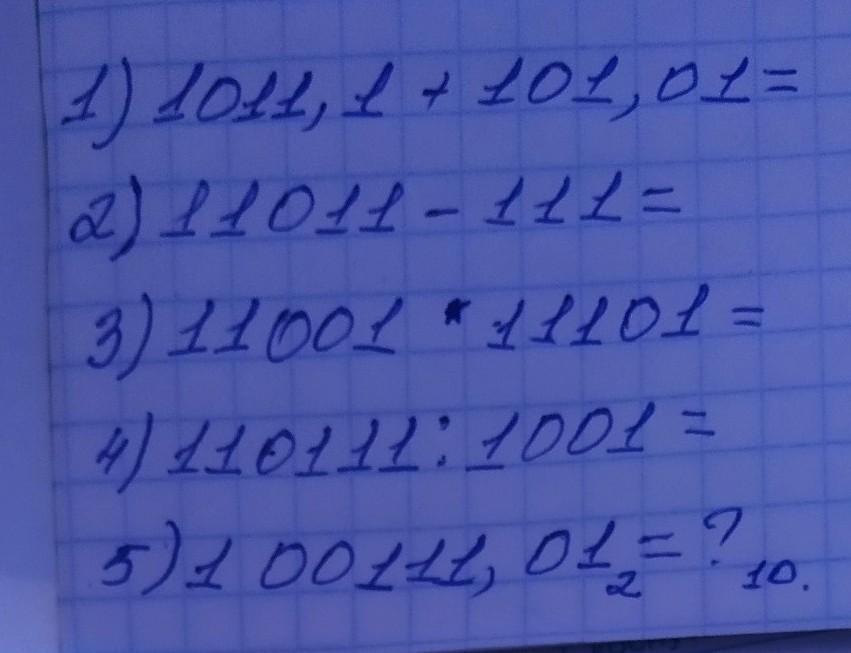 1) 1011,1 + 101,01 =
2) 11011 - 111 =
3) 11001 * 11101 =
4) 110111 : 1001 =
5) 100111,01₂ = ?₁₀.